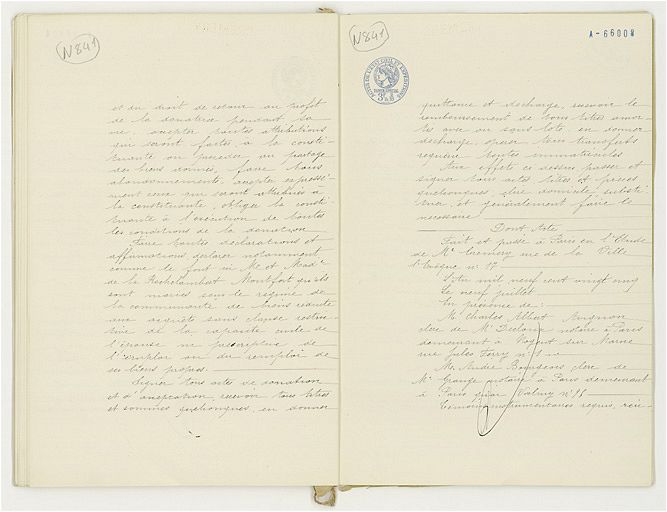 N 841
et du droit de retour au profit
de la donatrice pendant sa
vie, accepter toutes attributions
qui seront faites à la consti-
tuante ou prélever au partage
des biens donnés, faire tous
abandonnements, accepter expressé-
ment ceux qui seront attribués à
la constituante, obliger la consti-
tuante à l'exécution de toutes
les conditions de la donation
Faire toutes déclarations et
affirmations, déclarer notamment
comme le font ici Mr et Made
de la Rochelambert Montfort qu'ils
sont mariés sous le régime de
la communauté de biens réduite
aux acquêts sans clause restric-
tive de la capacité civile de
l'épouse ne prescriptive de
l'emploi ou du remploi de
ses biens propres
Signer tous actes de donation
et d'acceptation, recevoir tous titres
et sommes quelconques, en donner
N 841
A-66008
quittance et décharge, recevoir le
remboursement de tous titres amor-
tis avec ou sans lots, en donner
décharge, opérer tous transferts
requérir toutes immatricules
Aux effets ci dessus passer et
signer tous actes, titres et pièces
quelconques, élire domicile, substi-
tuer, et généralement faire le
nécessaire
Dont Acte,
Fait et passé à Paris en l'Etude
de Me rue de la Ville
l'Evêque no
L'An mil neuf cent vingt cinq
Le neuf juillet
En présence de :
Mr Charles Albert Avignon
clerc de Me notaire à Paris
demeurant à Nogent sur Marne
rue Jules Ferry no
Mr André Bourgeois clerc de
Me Grange notaire à Paris demeurant
à Paris quai Valmy no
Témoins instrumentaires requis, réu-